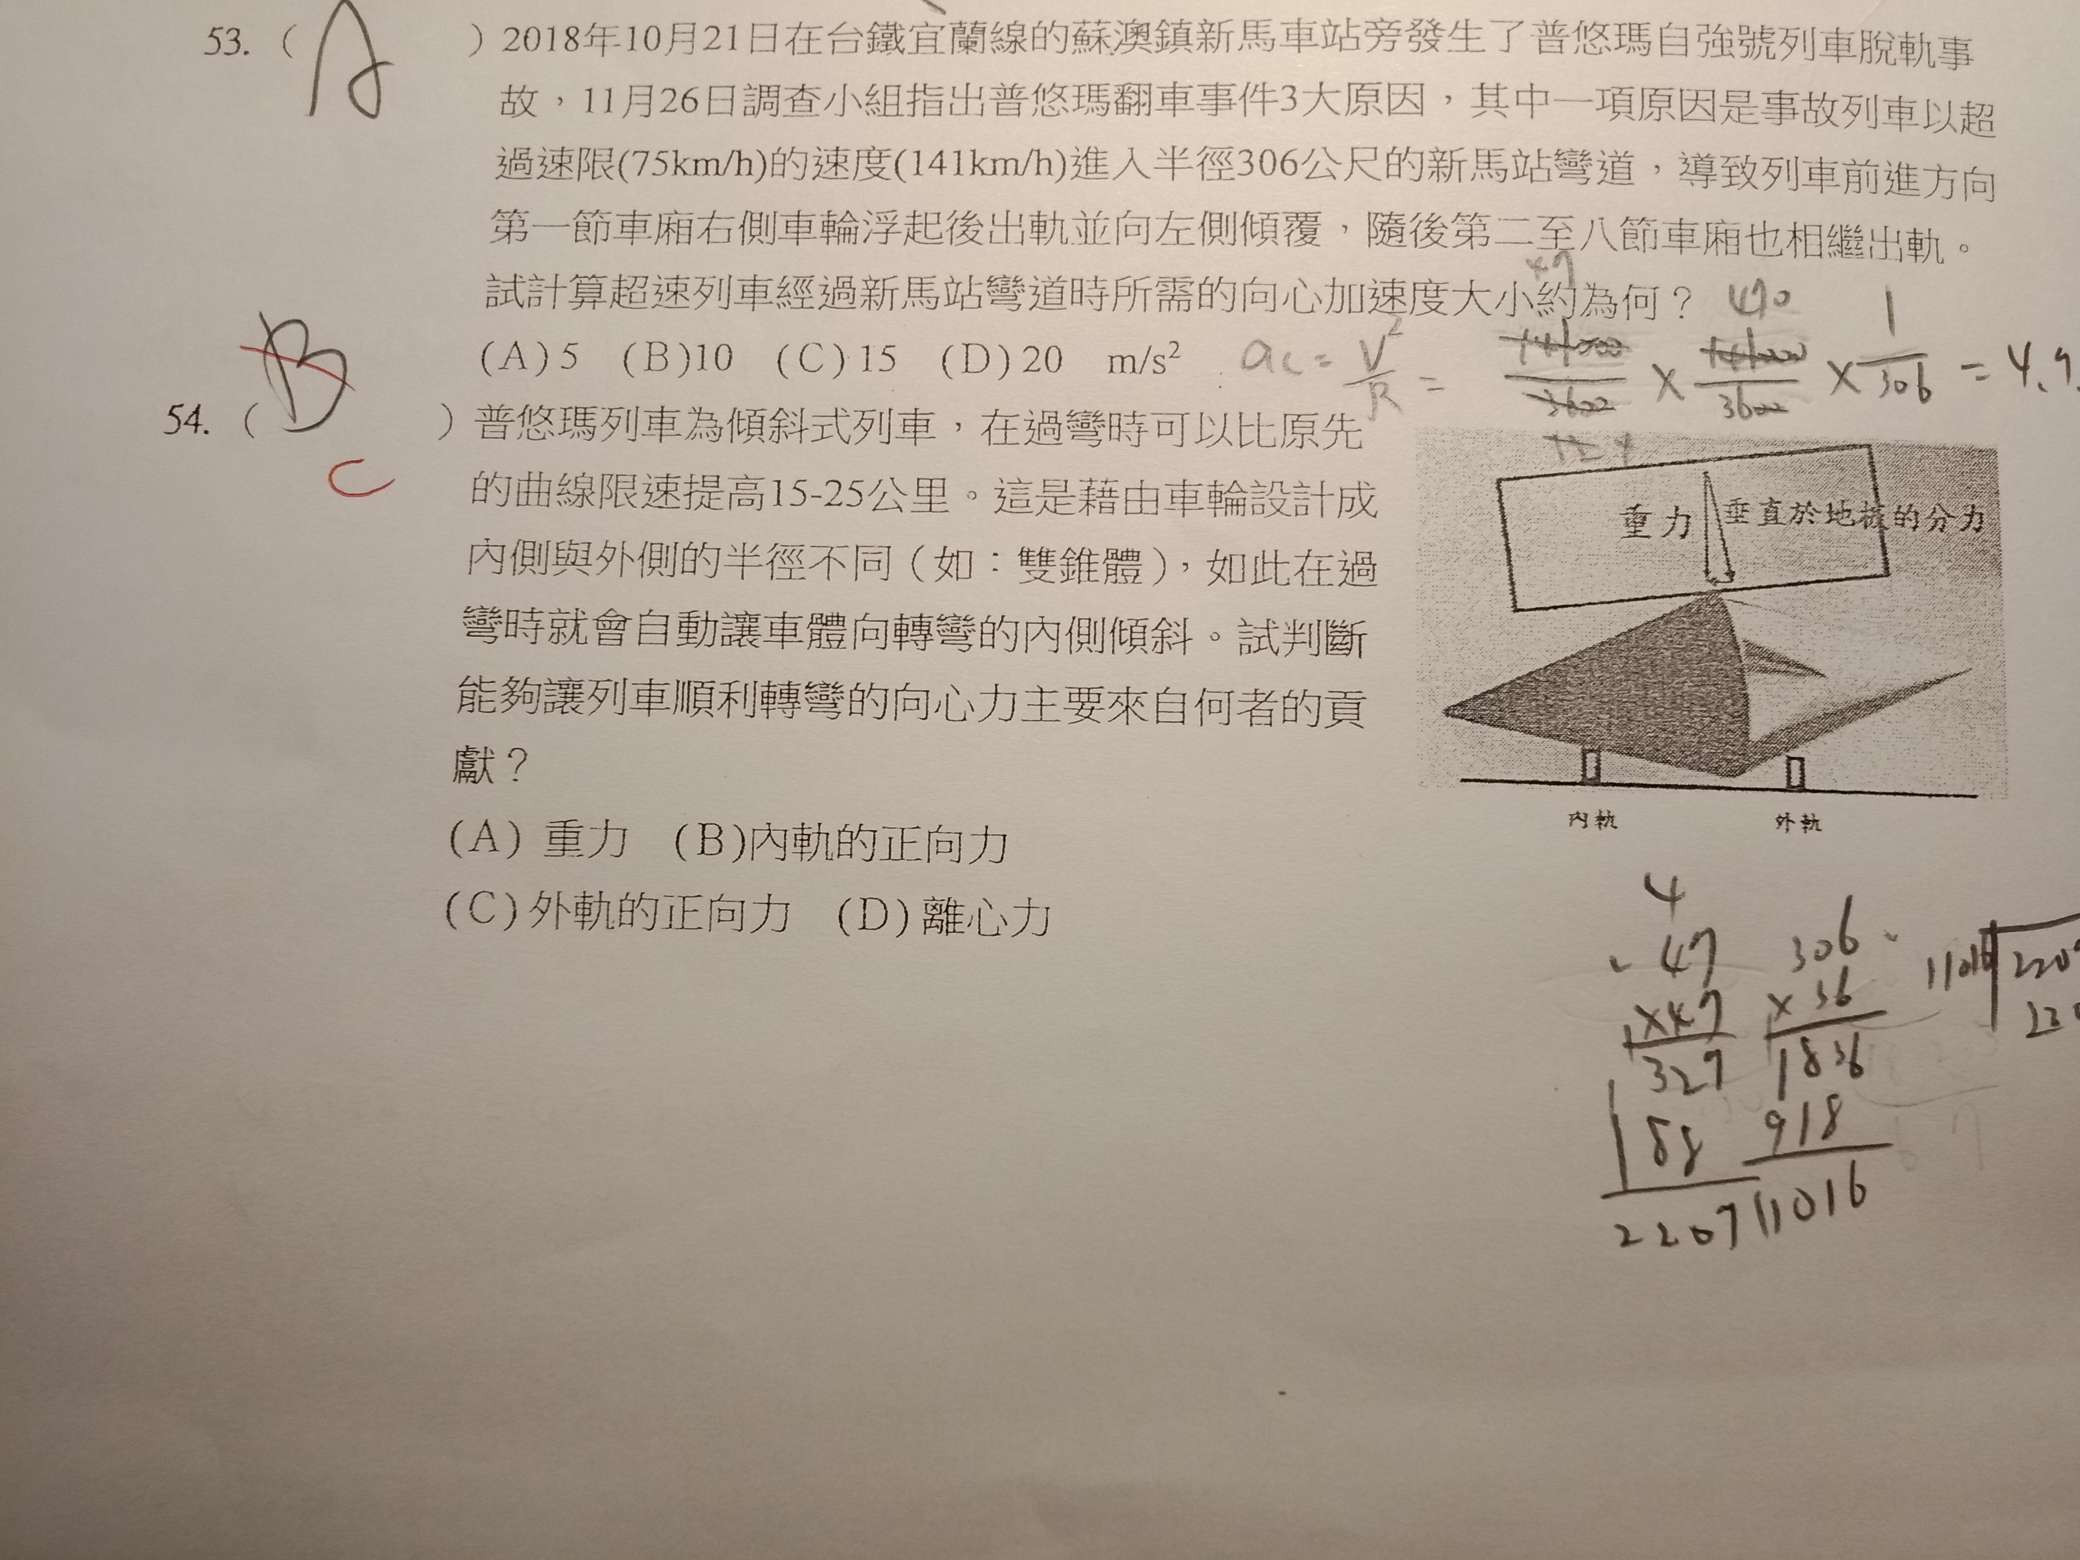 53. ( A ) 2018年10月21日在台鐵宜蘭線的蘇澳鎮新馬車站旁發生了普悠瑪自強號列車脫軌事
故，11月26日調查小組指出普悠瑪翻車事件3大原因，其中一項原因是事故列車以超
過速限(75km/h)的速度(141km/h)進入半徑306公尺的新馬站彎道，導致列車前進方向
第一節車廂右側車輪浮起後出軌並向左側傾覆，隨後第二至八節車廂也相繼出軌。
試計算超速列車經過新馬站彎道時所需的向心加速度大小約為何？
47 470 1
(A) 5 (B)10 (C) 15 (D) 20 m/s²
ac = V²/R = 141000/3600 × 141000/3600 × 1/306 = 4.9
54. ( B ) 普悠瑪列車為傾斜式列車，在過彎時可以比原先
C
的曲線限速提高15-25公里。這是藉由車輪設計成
內側與外側的半徑不同（如：雙錐體），如此在過
彎時就會自動讓車體向轉彎的內側傾斜。試判斷
能夠讓列車順利轉彎的向心力主要來自何者的貢
獻？
(A) 重力 (B)內軌的正向力
(C) 外軌的正向力 (D) 離心力
重力 垂直於地板的分力
內軌 外軌
4
47 306
×47 ×36
327 1836
188 918
2207 11016